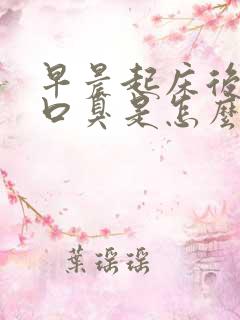 早晨起床後
口臭是怎麼
葉瑶瑶